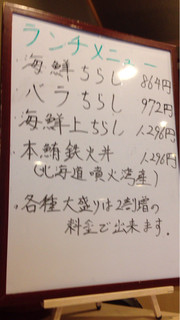 ランチメニュー
海鮮ちらし 864円
バラちらし 972円
海鮮上ちらし 1,296円
本鮪鉄火丼 1,296円
(北海道噴火湾産)
各種大盛りは2割増の
料金で出来ます.